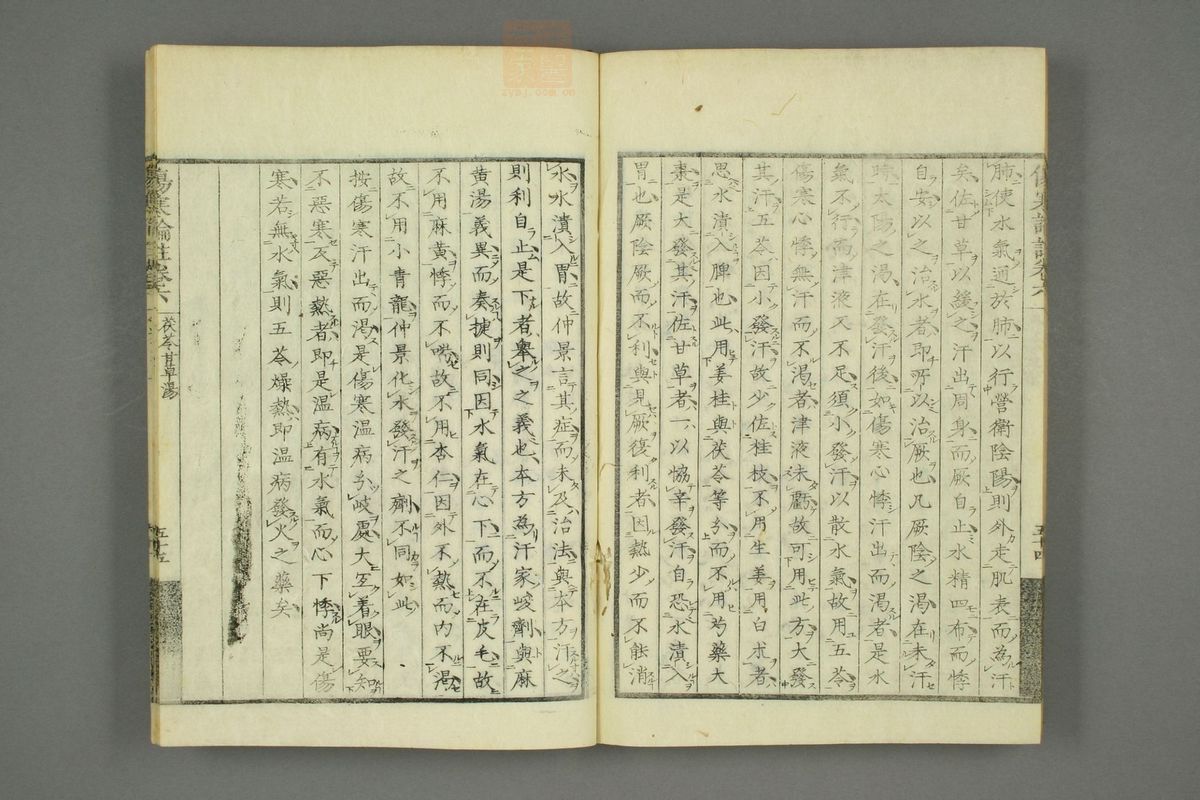 肺使水氣通於肺以行營衛陰陽則外走肌表而為汗
矣佐甘草以緩之汗出周身而厥自止水精四布而悸
自安以之治水者即所以治厥也凡厥陰之渴在未汗
時太陽之渴在發汗後如傷寒心悸汗出而渴者是水
氣不行而津液又不足須小發汗以散水氣故用五苓
傷寒心悸無汗而不渴者津液未虧故可用此方大發
其汗五苓因小發汗故少佐桂枝不用生姜用白朮者
思水漬入脾也此用姜桂與茯苓等分而不用芍藥大
棗是大發其汗佐甘草者一以恊辛發汗自恐水漬入
胃也厥陰厥而不利與見厥復利者因熱少而不能消
水水漬入胃故仲景言其症而未及治法與本方汗之
則利自止是下者舉之之義也本方為汗家峻劑與麻
黄湯義異而奏捷則同因水氣在心下而不在皮毛故
不用麻黄悸而不喘故不用杏仁因外不熱而内不渴
故不用小青龍仲景化水發汗之劑不同如此
按傷寒汗出而渴是傷寒温病分岐處大宜着眼要知
不惡寒反惡熱者即是温病有水氣而心下悸尚是傷
寒若無水氣則五苓燥熱即温病發火之藥矣
傷寒論註卷六
茯苓甘草湯
五十五
五十四
zysj.com.cn